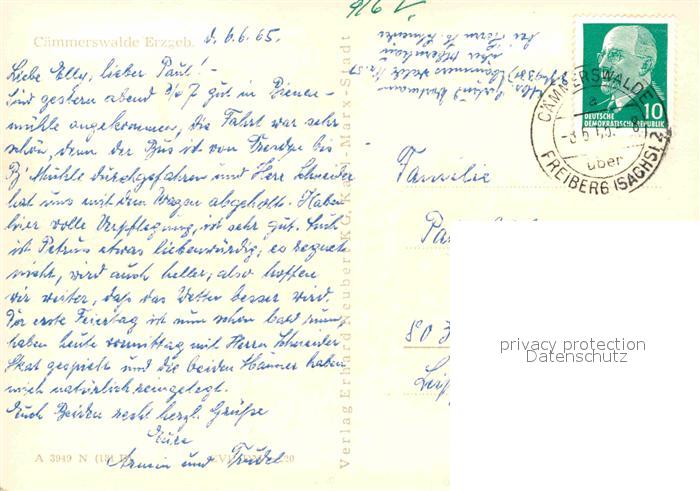 Cämmerswalde Erzgeb. d. 6.6.65.
Liebe Elly, lieber Paul! –
Sind gestern abend 3/4 7 gut in Bienen-
mühle angekommen, die Fahrt war sehr
schön, denn der Bus ist von bis
Bj Mühle durchgefahren und Herr Schneider
hat uns mit dem Wagen abgeholt. Haben
hier volle Verpflegung, ist sehr gut. Auch
ist Petrus etwas liebenswürdig, es regnete
nicht, wird auch heller, also hoffen
wir weiter, daß das Wetter besser wird.
Der erste Feiertag ist nun schon bald rum,
haben heute vormittag mit Herrn Schneider
Skat gespielt und die beiden Männer haben
mich natürlich reingelegt.
Euch Beiden recht herzl. Grüße
Eure
Armin und Trudel
A 3949 N
Verlag Erhard Neubert KG, Karl-Marx-Stadt
Cämmerswalde
über
bei Herrn
DEUTSCHE
DEMOKRATISCHE REPUBLIK
10
CÄMMERSWALDE
a
über
FREIBERG (SACHS) 2
Familie
803
privacy protection
Datenschutz